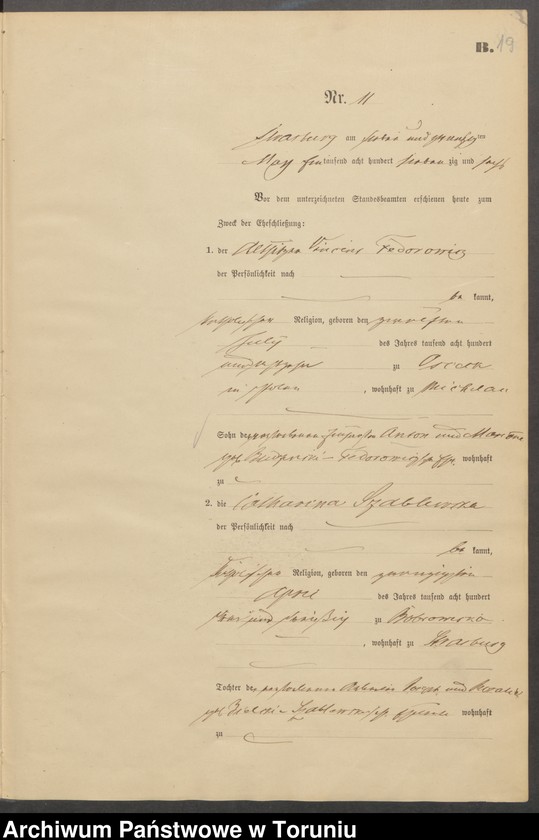 B. 19
Nr. 11
Strasburg am sieben und zwanzigsten
May Eintausend acht hundert sieben zig und sechs
Vor dem unterzeichneten Standesbeamten erschienen heute zum
Zweck der Eheschließung:
1. der Altsitzer Vincent Fedorowicz
der Persönlichkeit nach
be kannt,
katholischer Religion, geboren den zwölften
July des Jahres tausend acht hundert
zu
in Polen , wohnhaft zu Michelau
Sohn des verstorbenen Anton und Marianne
geb. Fedorowicz wohnhaft
zu
2. die Catharina Szablewska
der Persönlichkeit nach
be kannt,
katholischer Religion, geboren den zwanzigsten
April des Jahres tausend acht hundert
und dreißig zu Bobrowisko
, wohnhaft zu Strasburg
Tochter des verstorbenen Arbeiter Joseph und
geb. Zielski wohnhaft
zu
Archiwum Państwowe w Toruniu